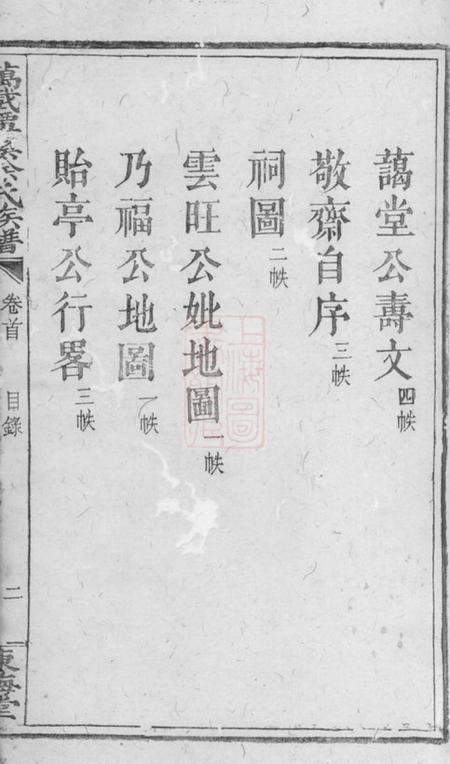 藹堂公壽文四帙
敬齋自序三帙
祠圖二帙
雲旺公妣地圖一帙
乃福公地圖一帙
貽亭公行畧三帙
萬載 氏族譜
卷首
目錄
二
東海堂